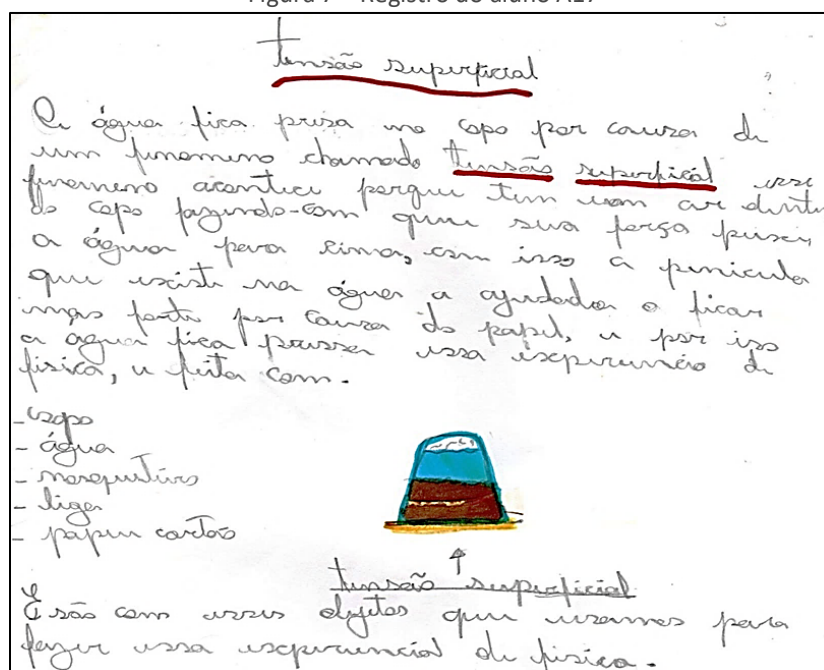 Figura 7 – Registro do aluno A17
tensão superficial
A água fica presa no copo por causa de
um finomino chamado tensão superficial esse
finomeno acontice porque tem um ar dentro
do copo fazendo-com que sua força puxe
a água para sima, com isso a penicula
que existe na água a ajudada a ficar
mas forte por causa do papel, e por isso
a água fica pressa essa experiencia de
física, e feita com.
- copo
- água
- liga
- papeu cartão
tensão superficial
E são com esses objetos que usamos para
fazer essa experiencia de física.